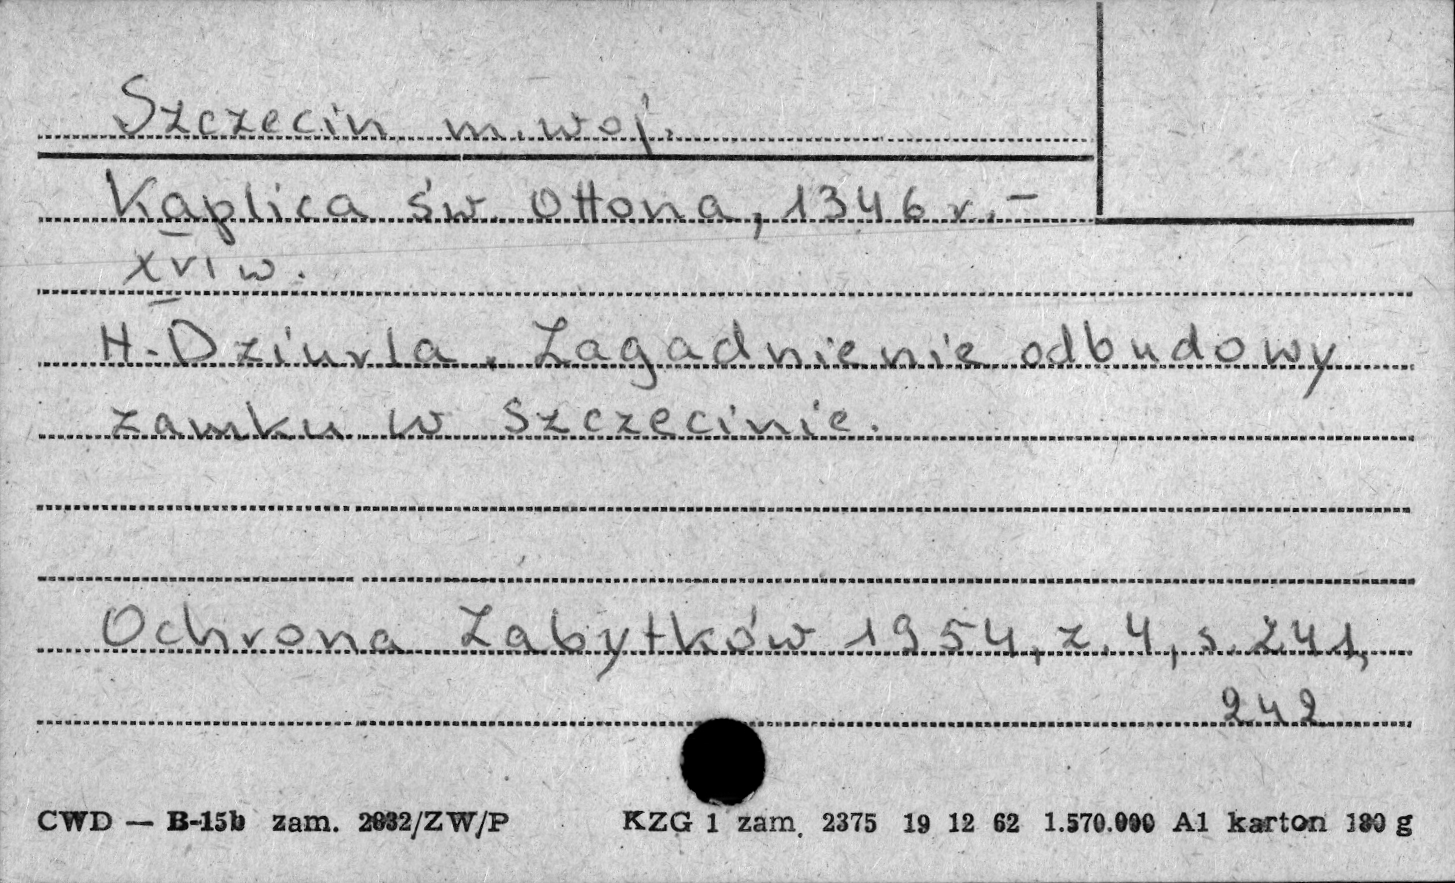 Szczecin m. woj.
Kaplica św. Ottona, 1346 r. -
XVI w.
H. Dziurla. Zagadnienie odbudowy
zamku w Szczecinie.
Ochrona Zabytków 1954, z. 4, s. 241,
242
CWD — B-15b zam. 2832/ZW/P KZG 1 zam. 2375 19 12 62 1.570.000 A1 karton 180 g